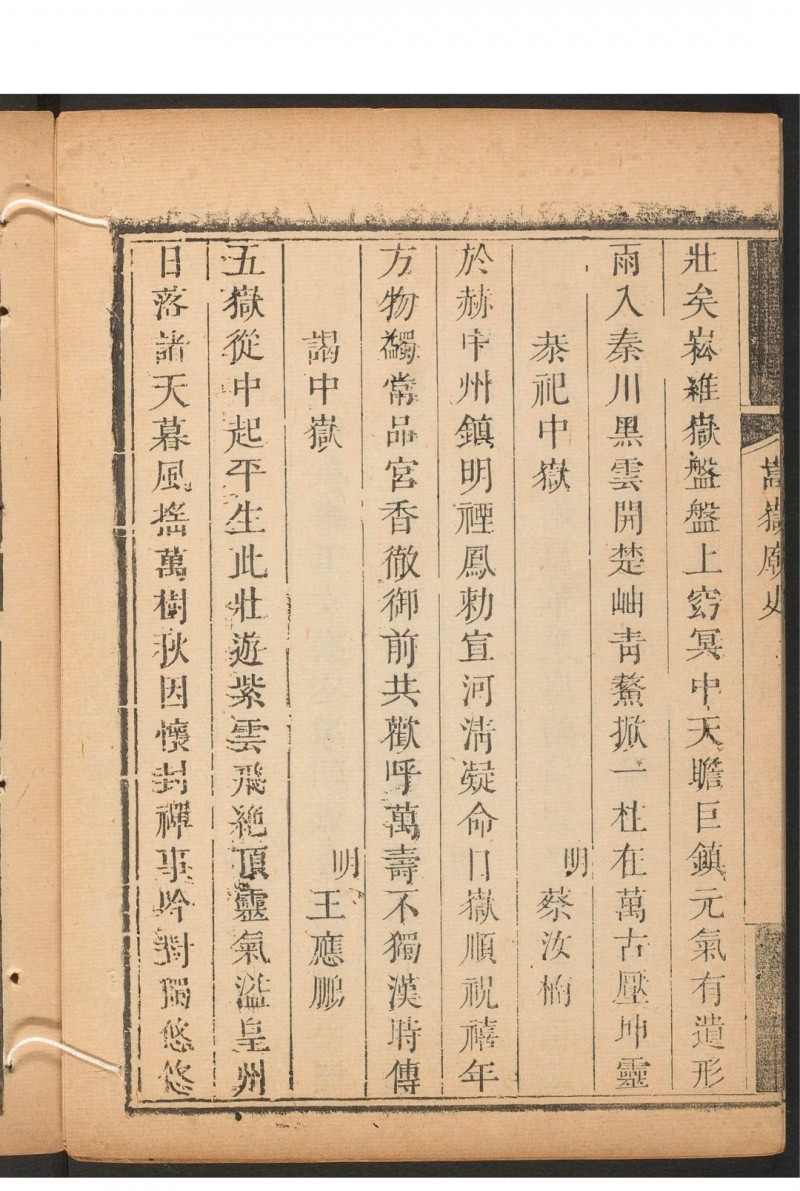 嵩嶽廟史
壯矣崧維嶽盤盤上窈冥中天瞻巨鎮元氣有遺形
雨入秦川黑雲開楚岫青鰲掀一柱在萬古壓坤靈
恭祀中嶽
明 蔡汝楠
於赫中州鎮明禋鳳勅宣河淸凝命日嶽順祝禧年
方物蠲常品宮香徹御前共歡呼萬壽不獨漢時傳
謁中嶽
明 王應鵬
五嶽從中起平生此壯遊紫雲飛絶頂靈氣溢皇州
日落諸天暮風搖萬樹秋因懷封禪事吟對獨悠悠